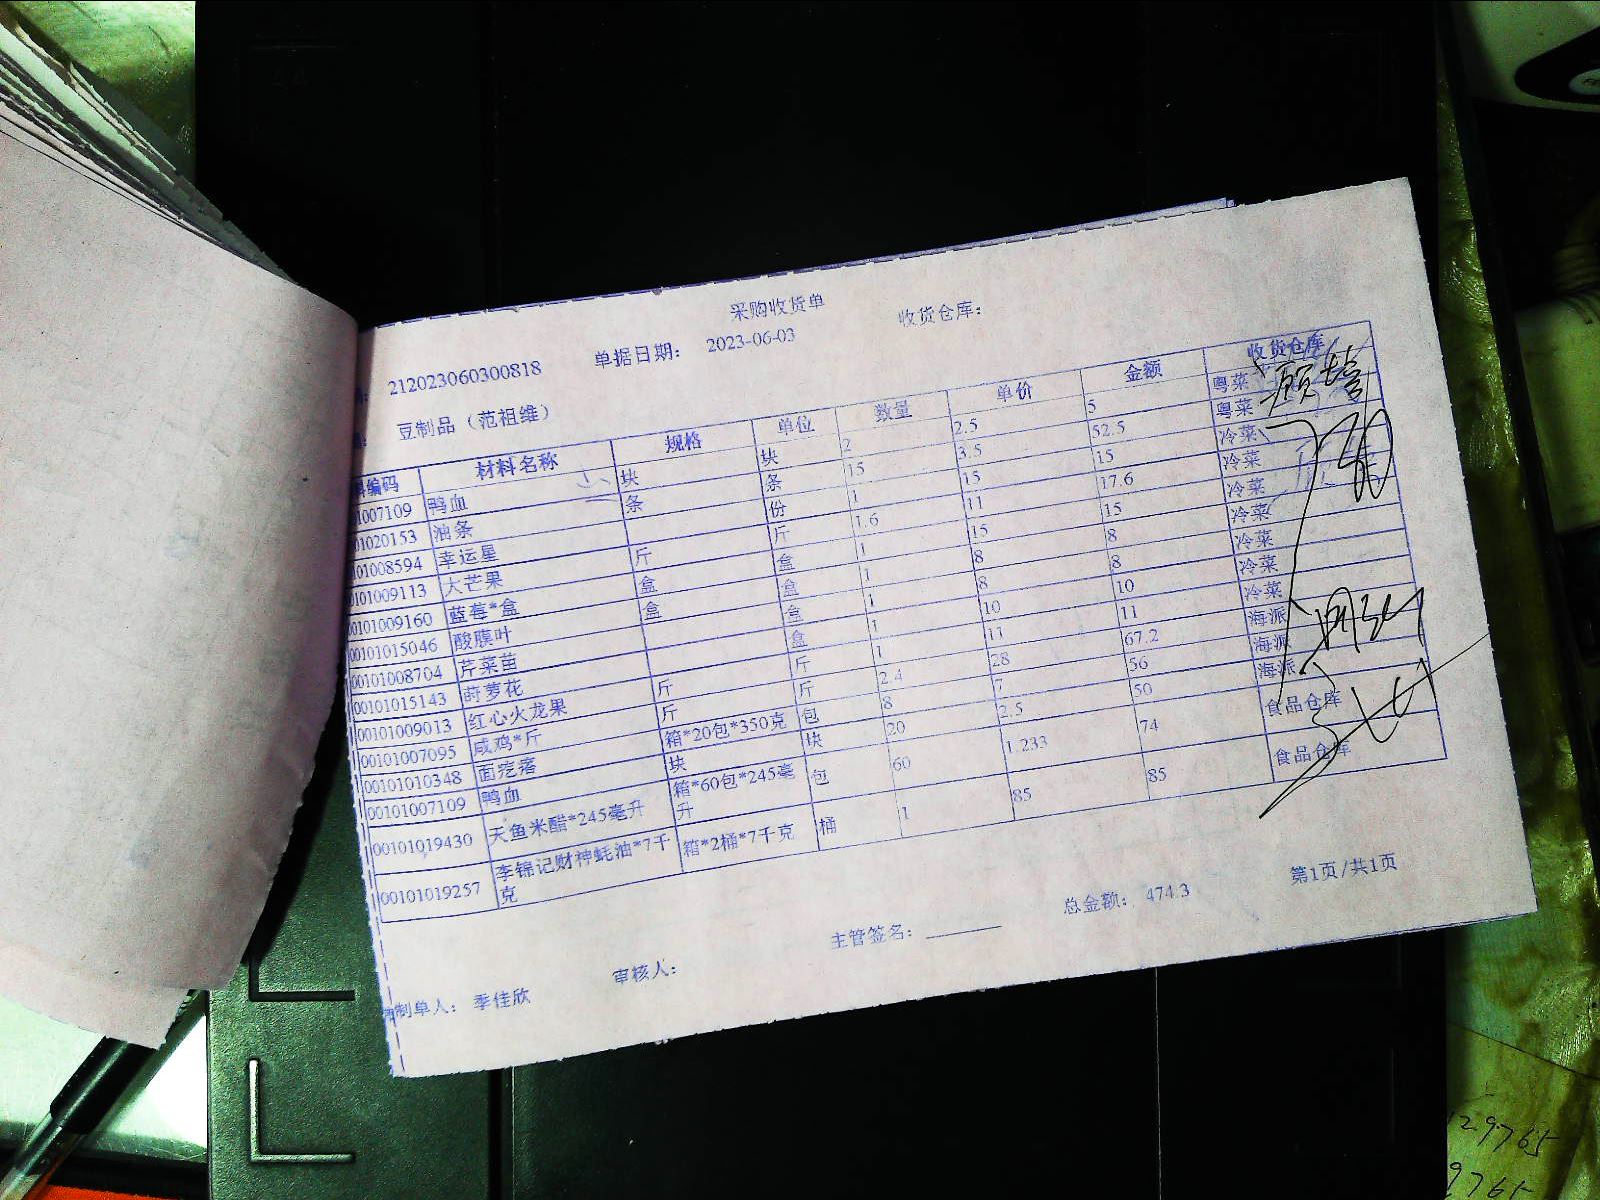 采购收货单
212023060300818 单据日期: 2023-06-03 收货仓库:
豆制品（范祖维）
编码 材料名称 规格 单位 数量 单价 金额 收货仓库
01007109 鸭血 块 块 2 2.5 5 粤菜
01020153 油条 条 条 15 3.5 52.5 粤菜
0101008594 幸运星 份 1 15 15 冷菜
0101009113 大芒果 斤 斤 1.6 11 17.6 冷菜
00101009160 蓝莓*盒 盒 盒 1 15 15 冷菜
00101015046 酸膜叶 盒 盒 1 8 8 冷菜
00101008704 芹菜苗 盒 1 8 8 冷菜
00101015143 莳萝花 盒 1 10 10 冷菜
00101009013 红心火龙果 斤 斤 1 11 11 冷菜
00101007095 咸鸡*斤 斤 斤 2.4 28 67.2 海派
00101010348 面疙瘩 箱*20包*350克 包 8 7 56 海派
00101007109 鸭血 块 块 20 2.5 50 海派
00101019430 天鱼米醋*245毫升 箱*60包*245毫升 包 60 1.233 74 食品仓库
00101019257 李锦记财神蚝油*7千克 箱*2桶*7千克 桶 1 85 85 食品仓库
总金额: 474.3 第1页/共1页
制单人: 季佳欣 审核人: 主管签名:
29765
9765